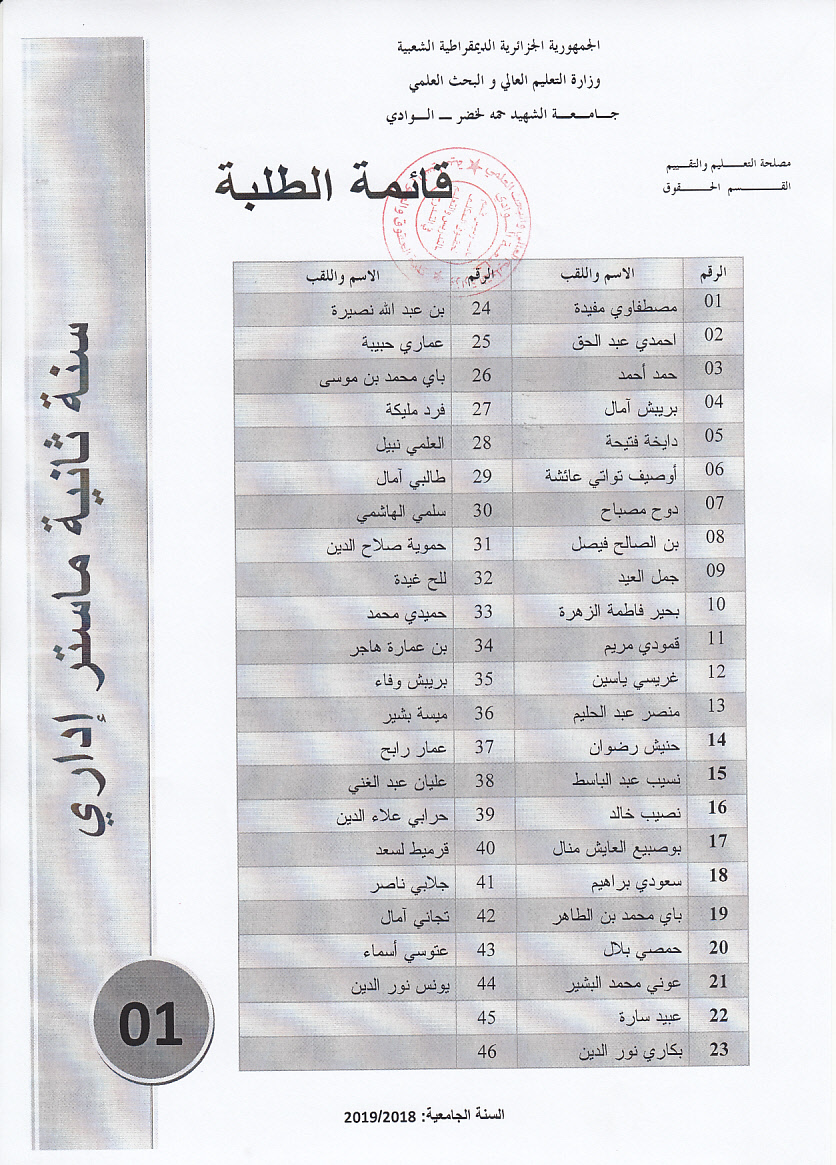 الجمهورية الجزائرية الديمقراطية الشعبية
وزارة التعليم العالي و البحث العلمي
جامعة الشهيد حمه لخضر – الوادي
مصلحة التعليم والتقييم
القسم الحقوق
قائمة الطلبة
الرقم الاسم واللقب الرقم الاسم واللقب
01 مصطفاوي مفيدة 24 بن عبد الله نصيرة
02 احمدي عبد الحق 25 عماري حبيبة
03 حمد أحمد 26 باي محمد بن موسى
04 بريبش آمال 27 فرد مليكة
05 دايخة فتيحة 28 العلمي نبيل
06 أوصيف تواتي عائشة 29 طالبي آمال
07 دوح مصباح 30 سلمي الهاشمي
08 بن الصالح فيصل 31 حموية صلاح الدين
09 جمل العيد 32 للح غيدة
10 بحير فاطمة الزهرة 33 حميدي محمد
11 قمودي مريم 34 بن عمارة هاجر
12 غريسي ياسين 35 بريبش وفاء
13 منصر عبد الحليم 36 ميسة بشير
14 حنيش رضوان 37 عمار رابح
15 نسيب عبد الباسط 38 عليان عبد الغني
16 نصيب خالد 39 حرابي علاء الدين
17 بوصبيع العايش منال 40 قرميط لسعد
18 سعودي براهيم 41 جلابي ناصر
19 باي محمد بن الطاهر 42 تجاني آمال
20 حمصي بلال 43 عتوسي أسماء
21 عوني محمد البشير 44 يونس نور الدين
22 عبيد سارة 45
23 بكاري نور الدين 46
سنة ثانية ماستر إداري
01
السنة الجامعية: 2019/2018